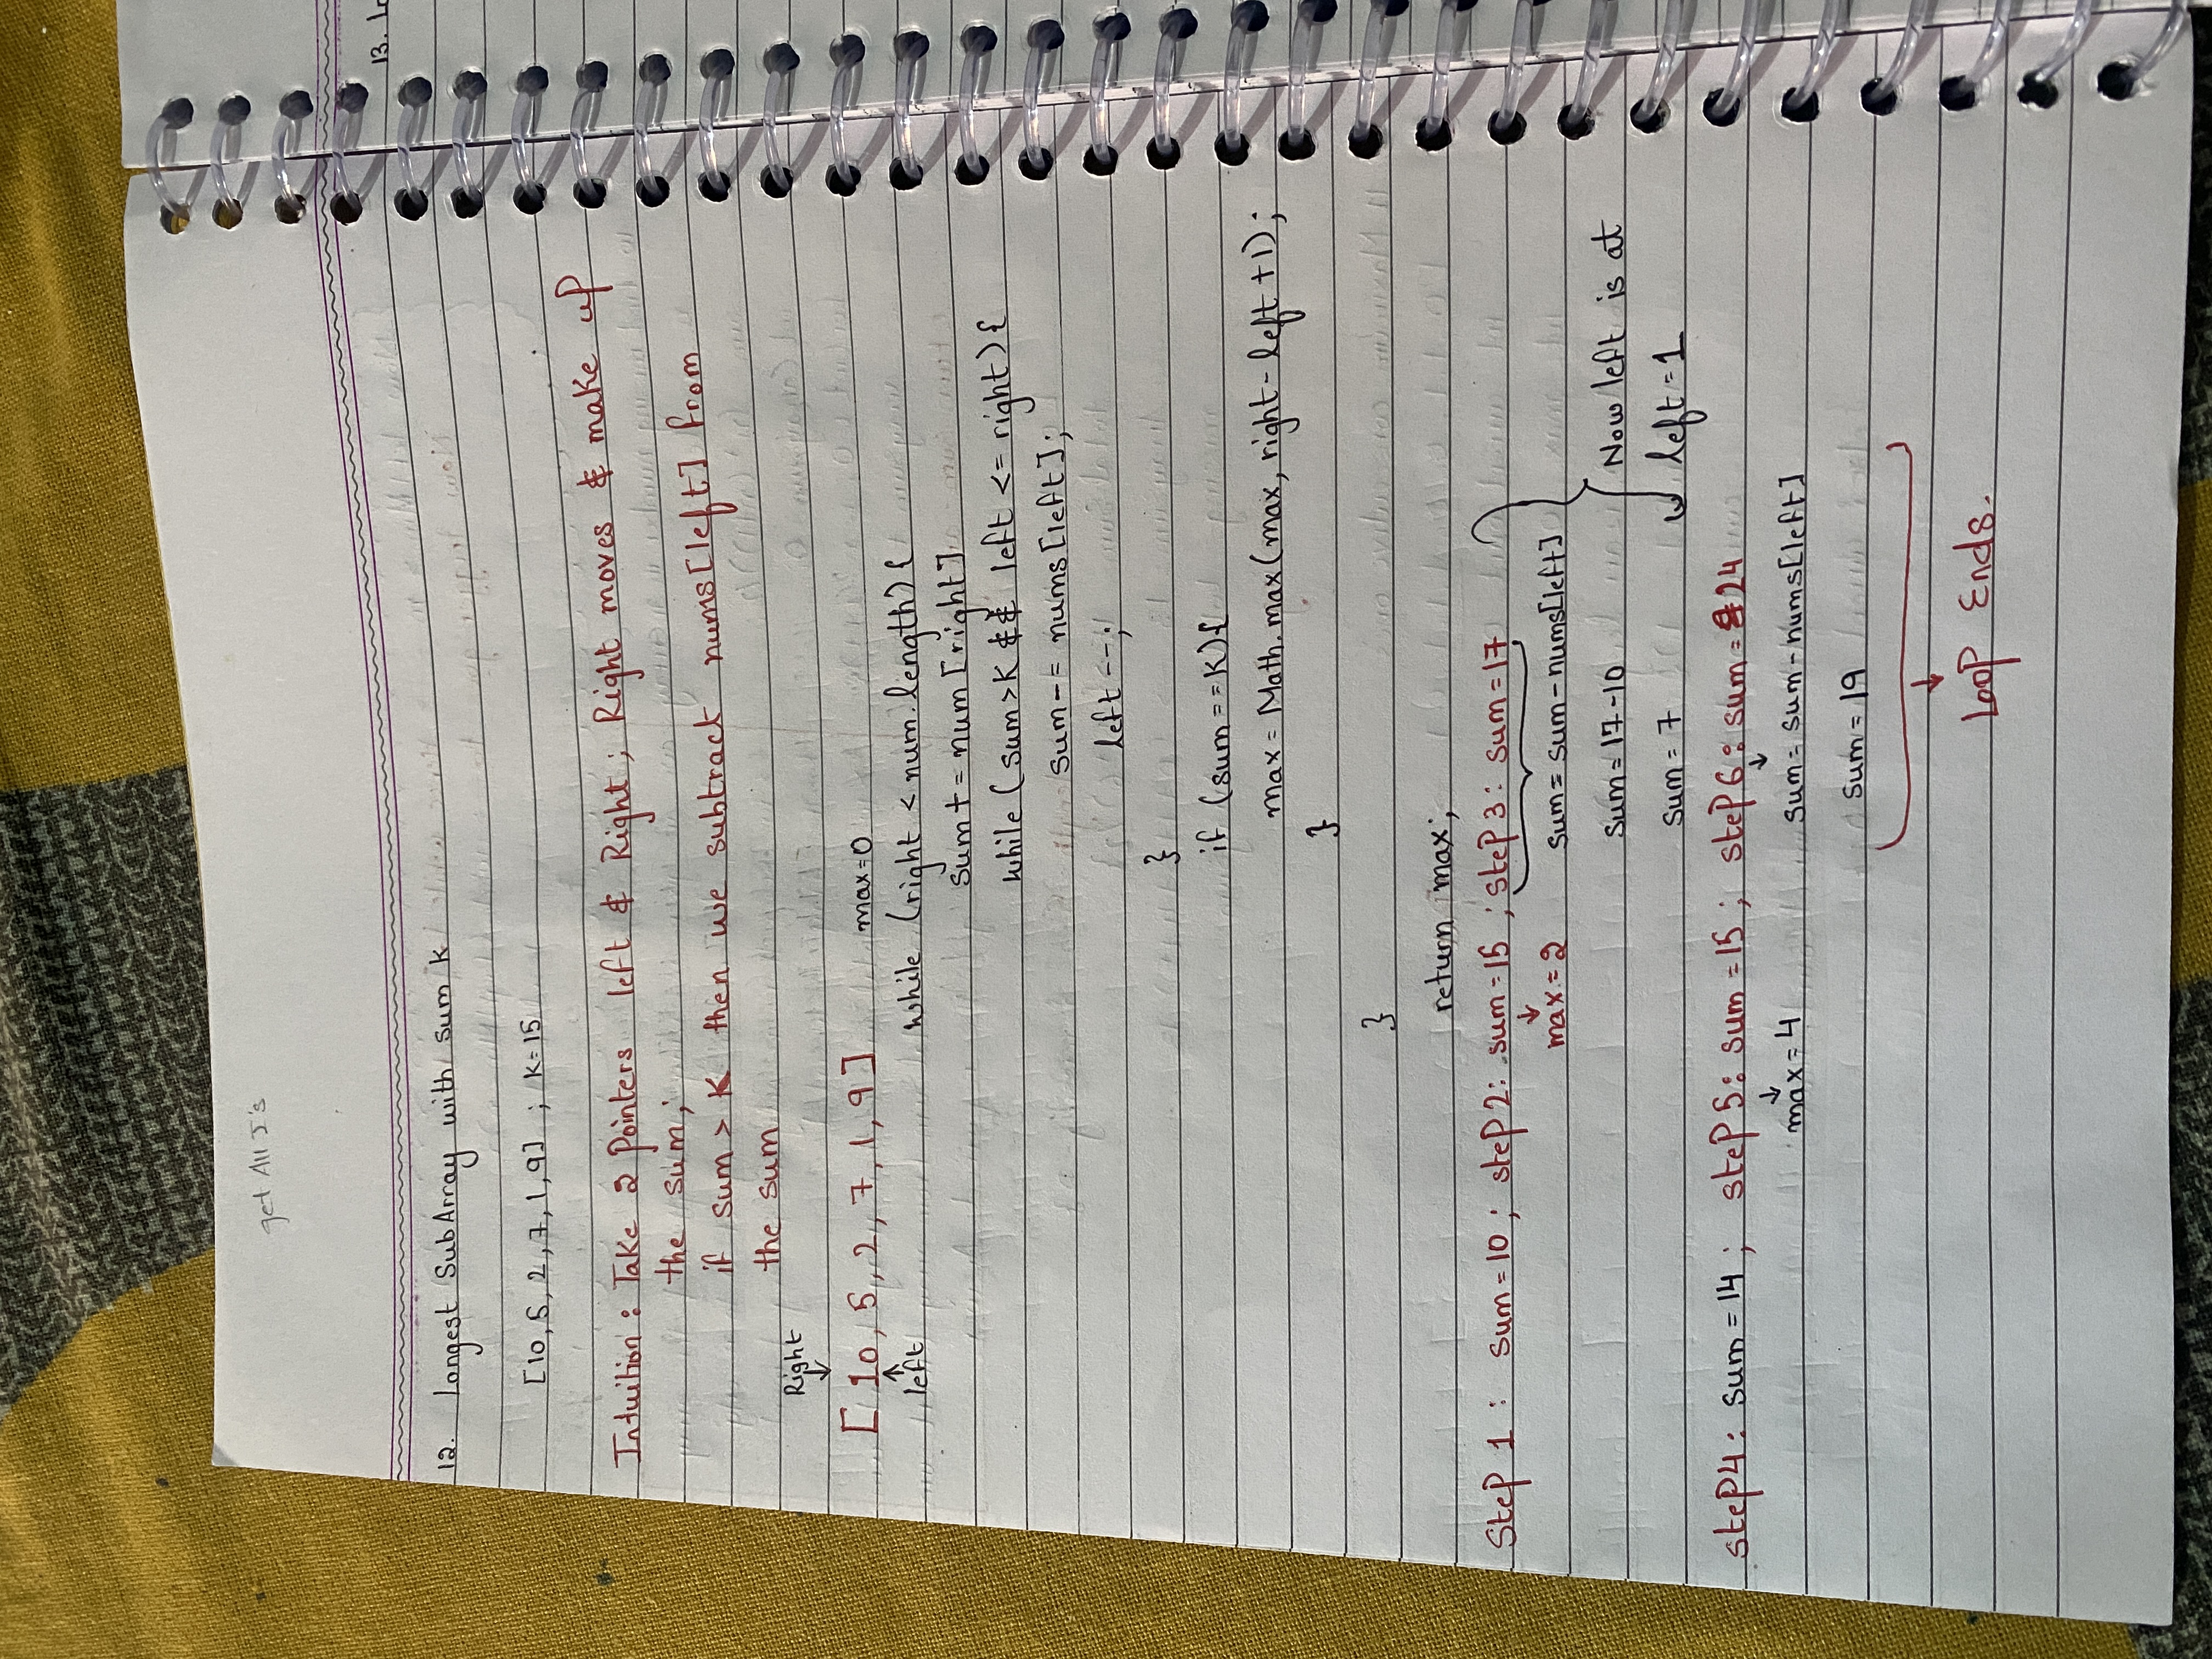 get All I's
12. Longest SubArray with sum K
[10, 5, 2, 7, 1, 9] ; K=15
Intuition : Take 2 Pointers left & Right; Right moves & make up
the sum;
if sum > K then we subtract nums[left] from
the sum
Right
↓
[ 10, 5, 2, 7, 1, 9 ]
↑
left
max=0
while (right < num.length) {
sum += num [right]
while ( sum>K && left <= right) {
sum -= nums [left];
left --;
}
if (sum == K) {
max = Math.max(max, right - left + 1);
}
}
return max;
Step 1 : sum = 10 ; step 2: sum = 15 ; step 3 : sum = 17
↓
max = 2
sum = sum - nums[left]
sum = 17 - 10
sum = 7
Now left is at
left = 1
step 4 : sum = 14 ; step 5 : sum = 15 ; step 6 : sum = 24
↓
max = 4
↓
sum = sum - nums[left]
sum = 19
↓
Loop Ends.
13. Lo